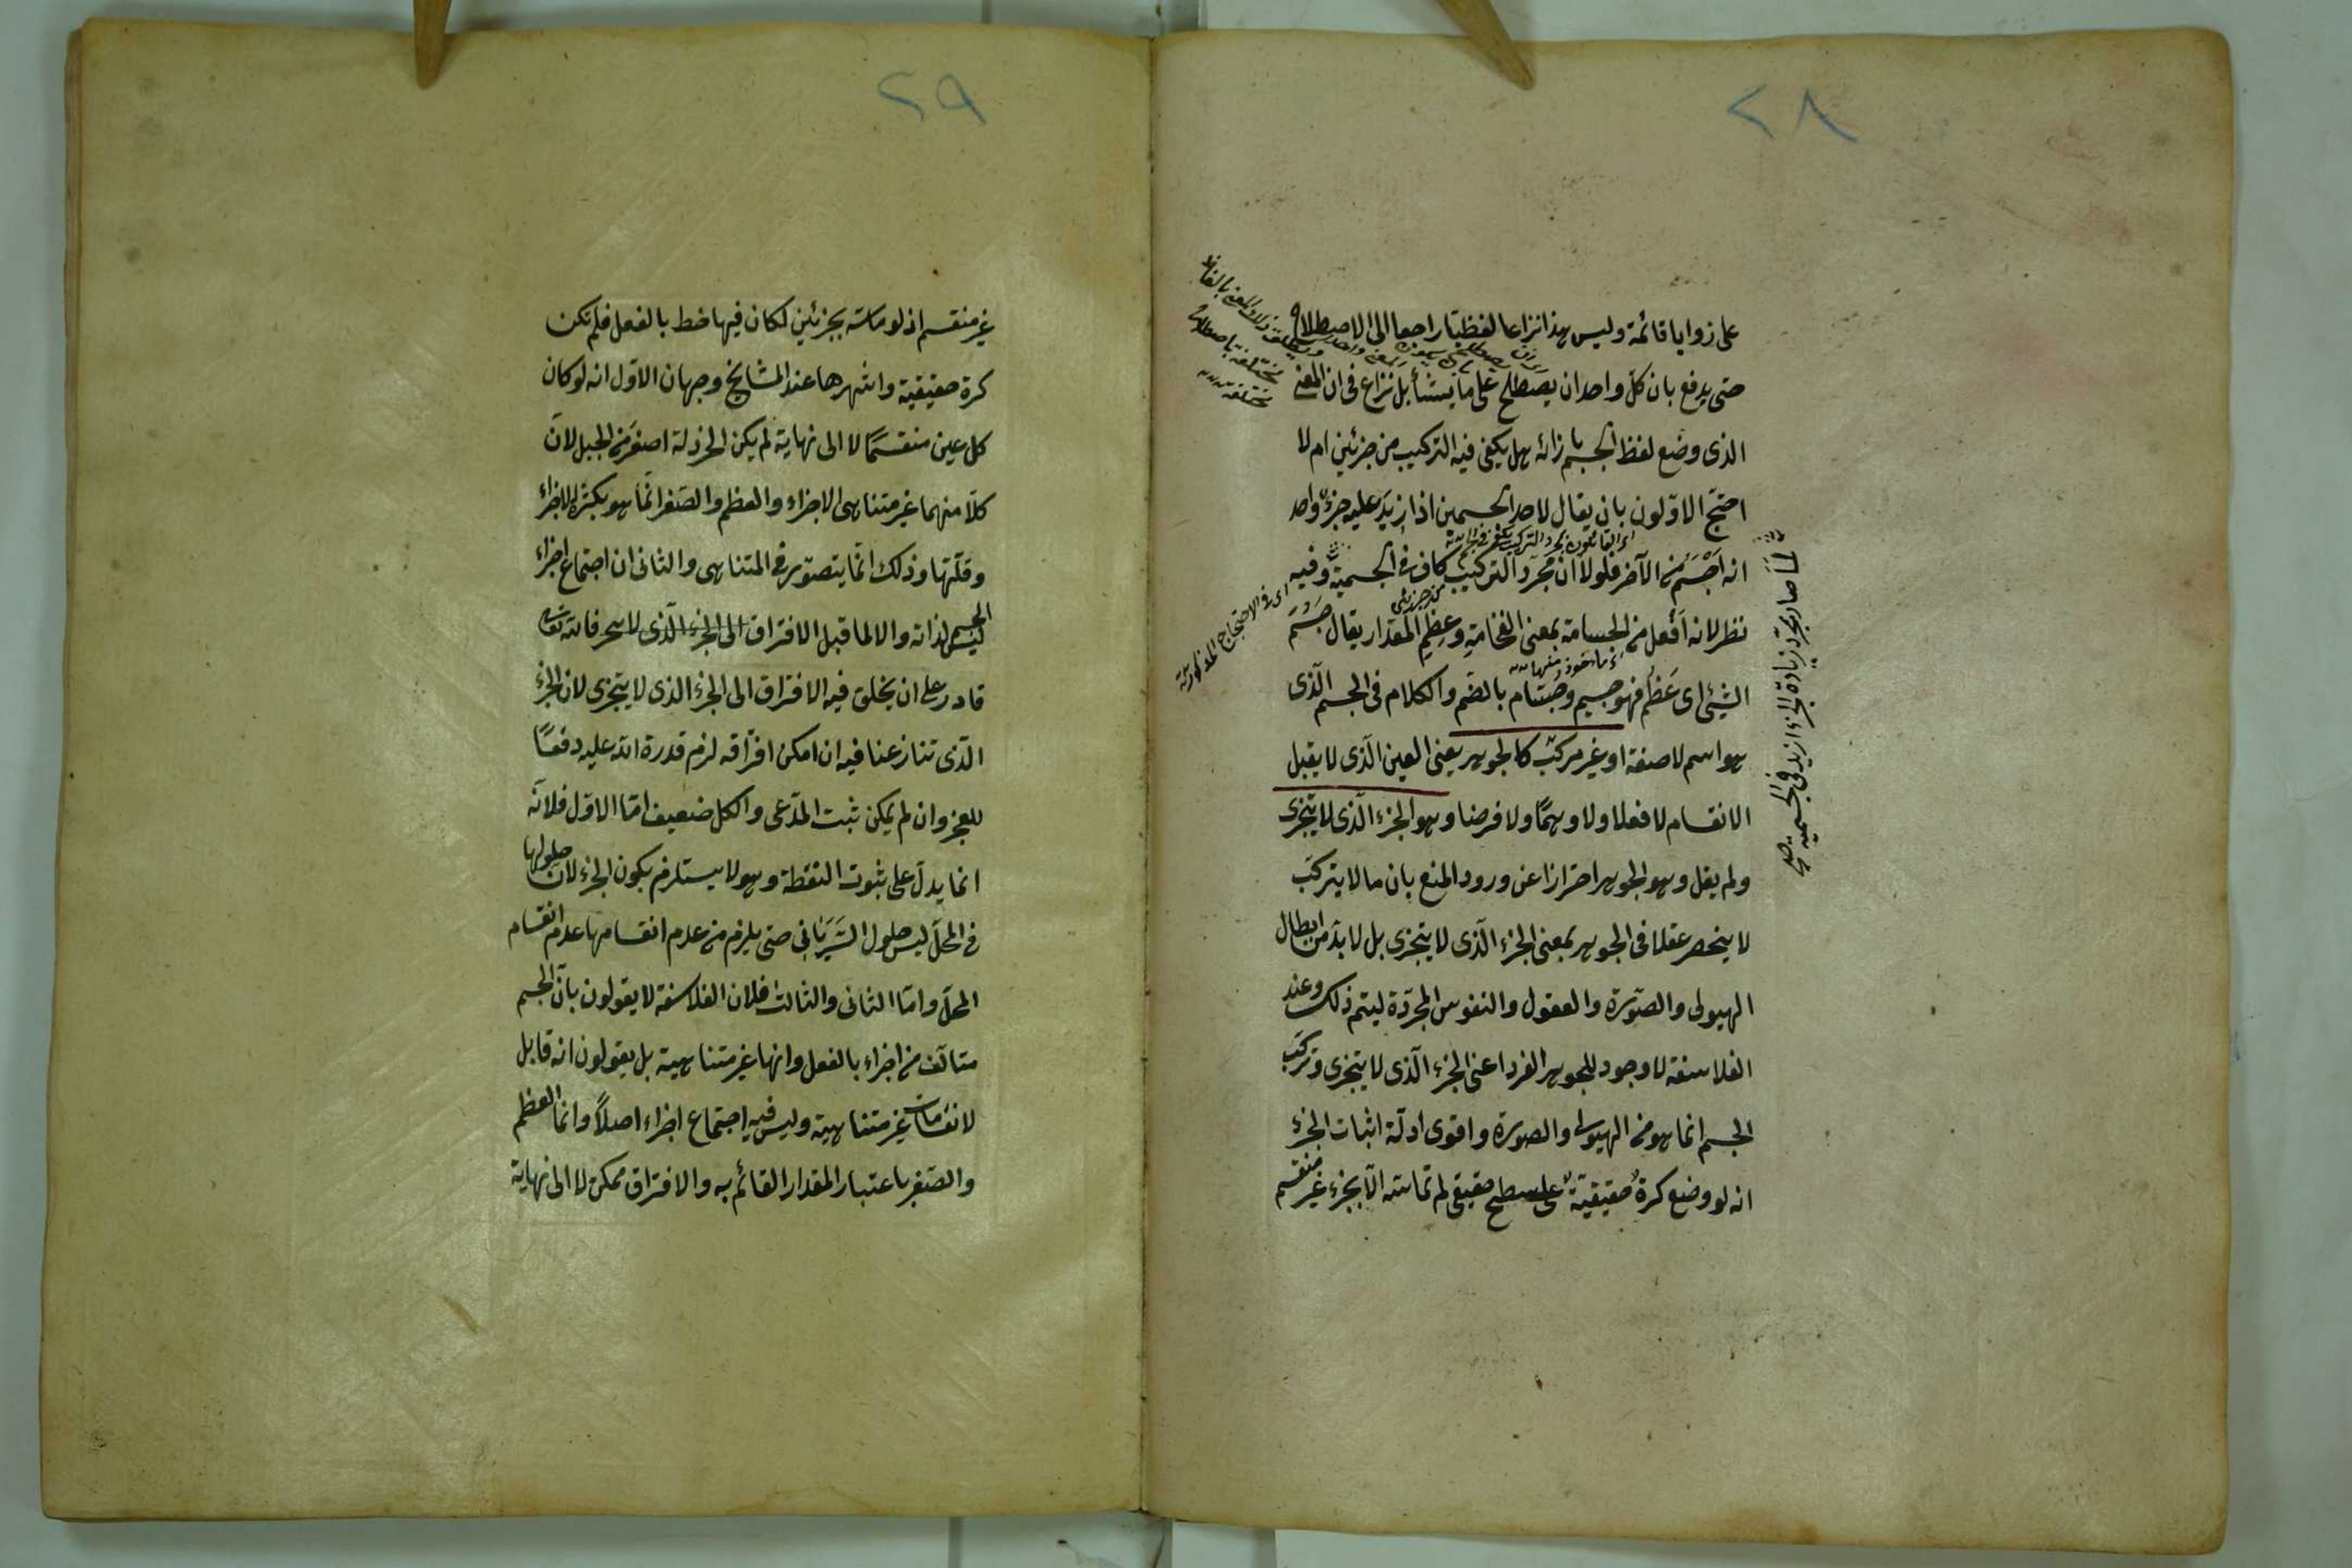 ٢٨
على زوايا قائمة وليس هذا نزاعا لفظيا راجعا الى الاصطلاح
حتى يدفع بان كل واحد ان يصطلح على ما يشأ بل نزاع فى ان المعنى
الذى وضع لفظ الجسم بازائه هل يكفى فيه التركيب من جزئين ام لا
احتج الاولون بان يقال لاحد الجسمين اذا زيد عليه جزء واحد
انه اجسم من الآخر فلولا ان مجرد التركيب كاف فى الجسمية
لما صار بمجرد زيادة الجزء ازيد فى الجسمية صح
وفيه
نظر لانه أفعل من الجسامة بمعنى الضخامة وعظم المقدار يقال جسم
الشيئ اى عظم فهو جسيم وجسام بالضم والكلام فى الجسم الذى
هو اسم لا صفة او غير مركب كالجوهر يعنى العين الذى لا يقبل
الانقسام لا فعلا ولا وهما ولا فرضا وهو الجزء الذى لا يتجزى
ولم يقل وهو الجوهر احترازا عن ورود المنع بان ما لا يتركب
لا ينحصر عقلا فى الجوهر بمعنى الجزء الذى لا يتجزى بل لا بد من ابطال
الهيولى والصورة والعقول والنفوس المجردة ليتم ذلك وعند
الفلاسفة لا وجود للجوهر الفرد اعنى الجزء الذى لا يتجزى وتركب
الجسم انما هو من الهيولى والصورة واقوى ادلة اثبات الجزء
انه لو وضع كرة حقيقية على سطح حقيقى لم تماسه الا بجزء غير منقسم
اى فى الاحتجاج المذكور
٢٩
غير منقسم اذ لو ماسته بجزئين لكان فيها خط بالفعل فلم تكن
كرة حقيقية واشهرها عند المشايخ وجهان الاول انه لو كان
كل عين منقسما لا الى نهاية لم يكن الخردلة اصغر من الجبل لان
كلا منهما غير متناهى الاجزاء والعظم والصغر انما هو بكثرة الاجزاء
وقلتها وذلك انما يتصور فى المتناهى والثانى ان اجتماع اجزاء
الجسم ليس لذاته والا لما قبل الافتراق فالله تعالى
قادر على ان يخلق فيه الافتراق الى الجزء الذى لا يتجزى لان الجزء
الذى تنازعنا فيه ان امكن افتراقه لزم قدرة الله عليه دفعا
للعجز وان لم يمكن ثبت المدعى والكل ضعيف اما الاول فلانه
انما يدل على ثبوت النقطة وهو لا يستلزم بكون الجزء لان حلولها
فى المحل ليس حلول السريانى حتى يلزم من عدم انقسامها عدم انقسام
المحل واما الثانى والثالث فلان الفلاسفة لا يقولون بان الجسم
متألف من اجزاء بالفعل وانها غير متناهية بل يقولون انه قابل
لانقسامات غير متناهية وليس فيه اجتماع اجزاء اصلا وانما العظم
والصغر باعتبار المقدار القائم به والافتراق ممكن لا الى نهاية